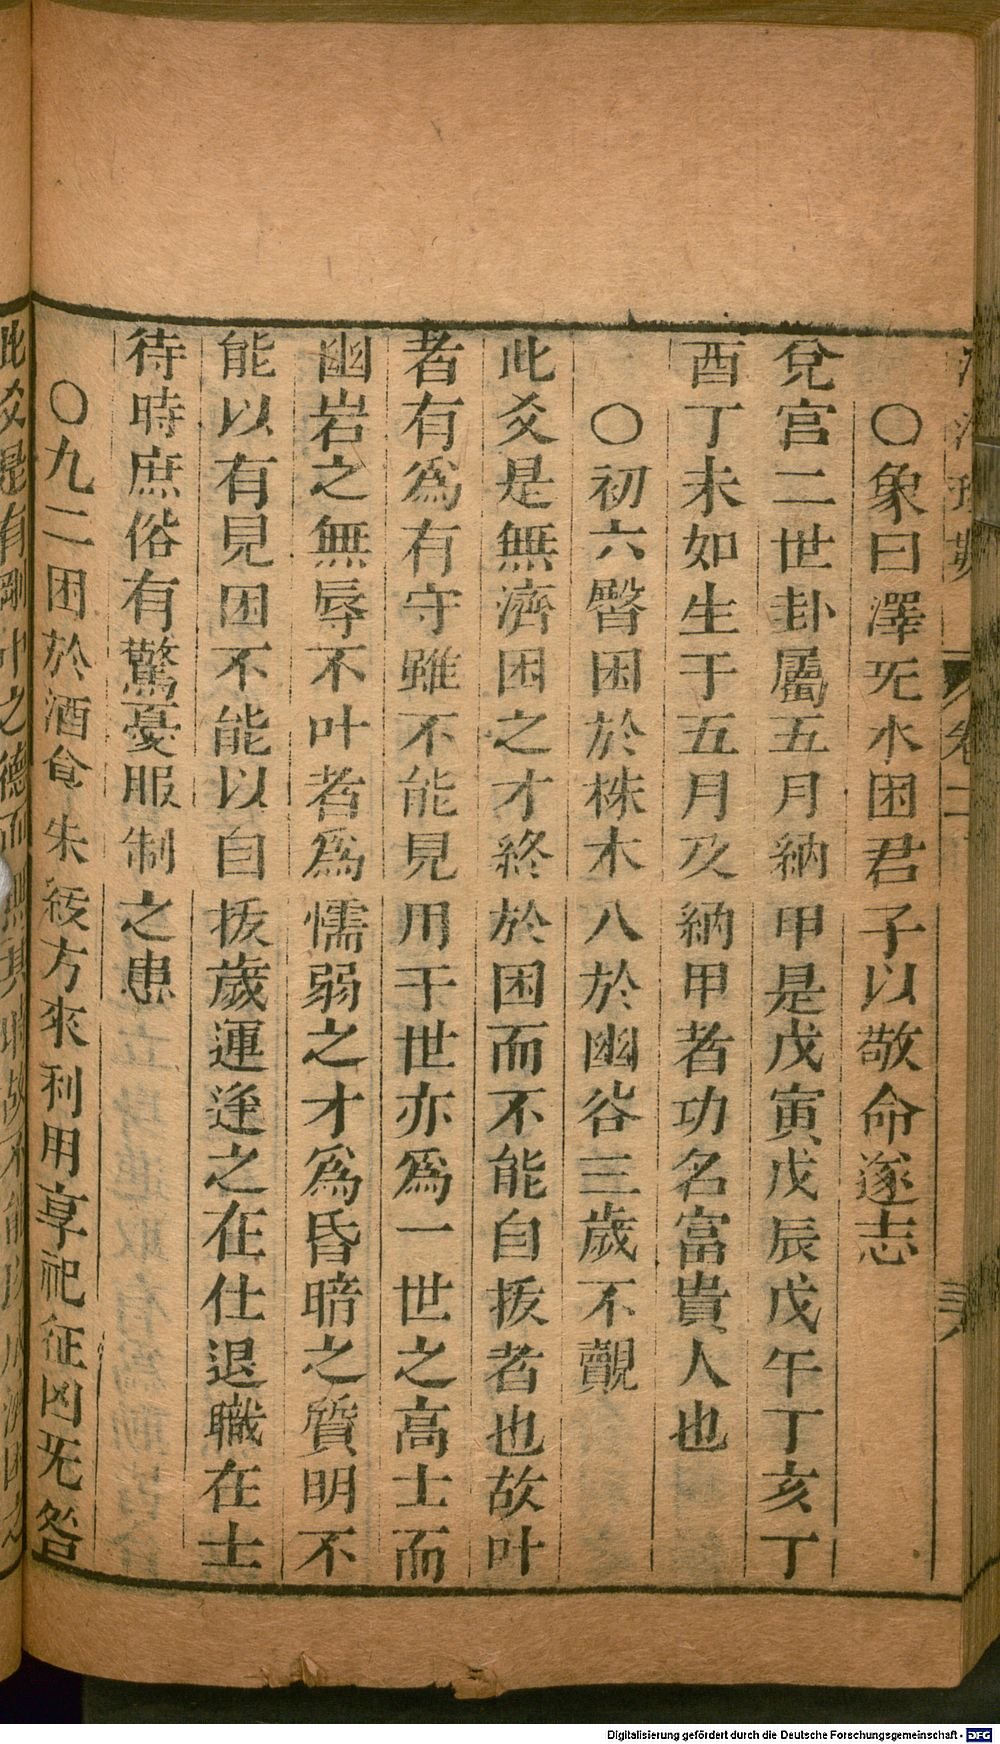 〇象曰澤无水困君子以致命遂志
兌宫二世卦屬五月納甲是戊寅戊辰戊午丁亥丁
酉丁未如生于五月及納甲者功名富貴人也
〇初六臀困於株木入於幽谷三歲不覿
此爻是無濟困之才終於困而不能自拔者也故叶
者有為有守雖不能見用于世亦為一世之高士而
幽岩之無辱不叶者為懦弱之才為昏暗之質明不
能以有見困不能以自拔歲運逢之在仕退職在士
待時庶俗有驚憂服制之患
〇九二困於酒食朱紱方來利用享祀征凶无咎
此爻是有剛中之德而無其
卷二
Digitalisierung gefördert durch die Deutsche Forschungsgemeinschaft - DFG